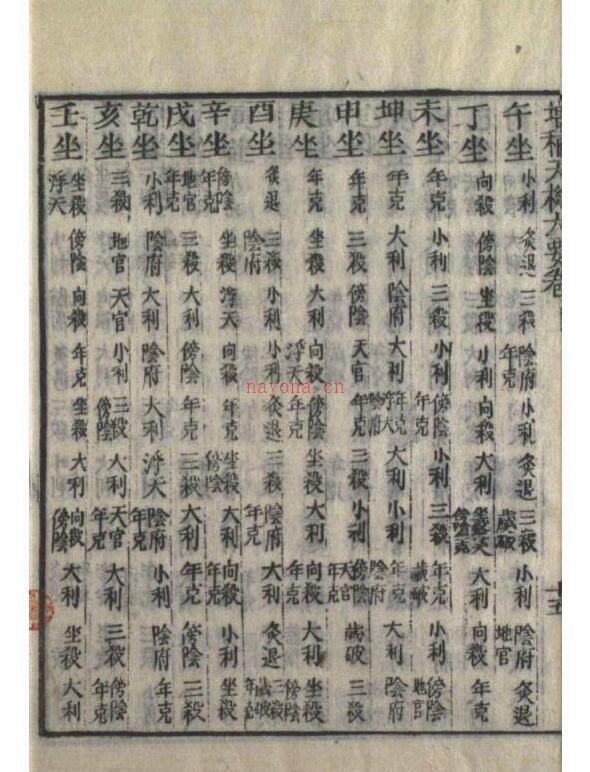 天機大要卷 十五
午坐 小利 灸退 三殺 陰府年克 小利 灸退 三殺歲破 小利 陰府地官 灸退
丁坐 向殺 傍陰 坐殺 小利 向殺 大利 坐殺 大利 向殺 年克
未坐 年克 小利 三殺 小利 傍陰年克 小利 三殺 年克歲破 小利 傍陰地官
坤坐 年克 大利 陰府 大利 年克浮天陰府 大利 小利 年克陰府 大利 陰府
申坐 年克 三殺 傍陰 天官 年克 三殺 小利 傍陰天官年克 歲破 三殺
庚坐 年克 坐殺 大利 向殺浮天 傍陰年克 坐殺 大利 向殺 大利 坐殺傍陰
酉坐 灸退 三殺陰府 小利 小利 灸退 三殺 陰府年克 大利 灸退 三殺歲破年克
辛坐 傍陰年克 坐殺 浮天 向殺 年克 坐殺傍陰 大利 向殺年克 小利 坐殺
戌坐 地官年克 三殺 大利 傍陰 年克 三殺 大利 年克 傍陰 三殺
乾坐 小利 陰府 大利 陰府 大利 浮天 陰府大利 小利 陰府 年克
亥坐 三殺 地官 天官 小利 三殺傍陰 大利 天官年克 大利 三殺 傍陰年克
壬坐 坐殺浮天 傍陰 向殺 年克 坐殺 大利 向殺傍陰 大利 坐殺 大利
nayona.cn